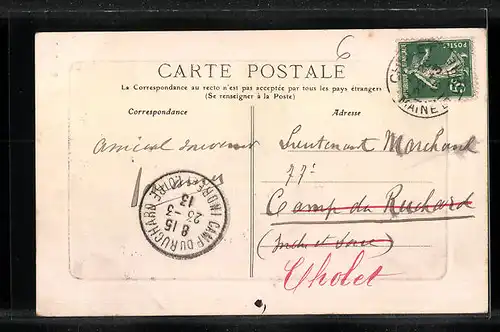 6
CARTE POSTALE
La Correspondance au recto n'est pas acceptée par tous les pays étrangers
(Se renseigner à la Poste)
Correspondance
Adresse
POSTES
5c
MAINE
Amical souvenir
Lieutenant Marchand
77e
Camp du Ruchard
(Indre et Loire)
Cholet
CAMP DU RUCHARD
INDRE-ET-LOIRE
8 15
23 - 3
13